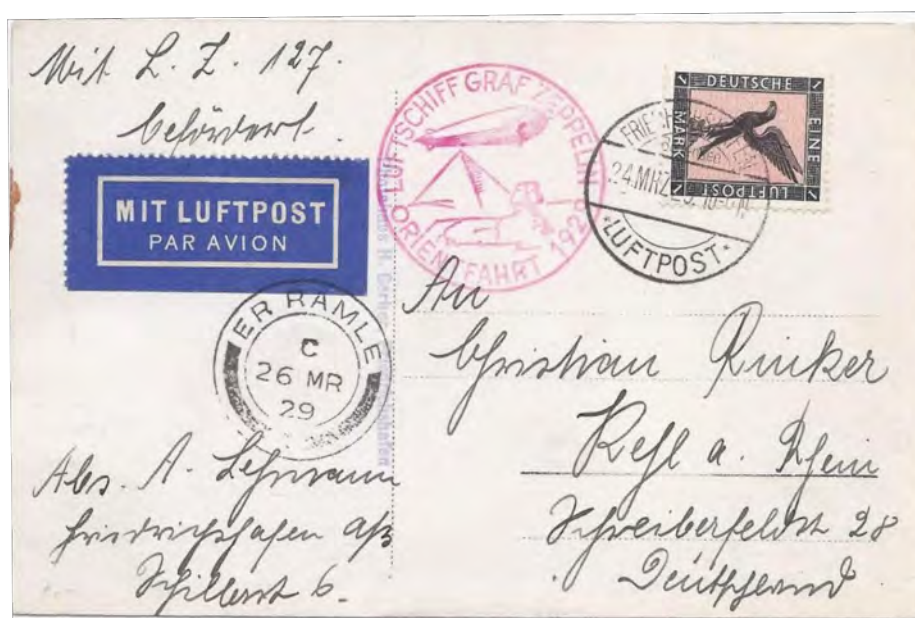 Mit L. Z. 127.
befördert.
MIT LUFTPOST
PAR AVION
LUFTSCHIFF GRAF ZEPPELIN
ORIENTFAHRT 192
DEUTSCHE
EINE
MARK
LUFTPOST
1 1
1 1
24.MRZ
LUFTPOST
ER RAMLE
C
26 MR
29
An
Christian Rinker
Kehl a. Rhein
Schreiberfeldstr 28
Deutschland
Abs. A. Lehmann
Friedrichshafen a/B
Schillerstr 6.